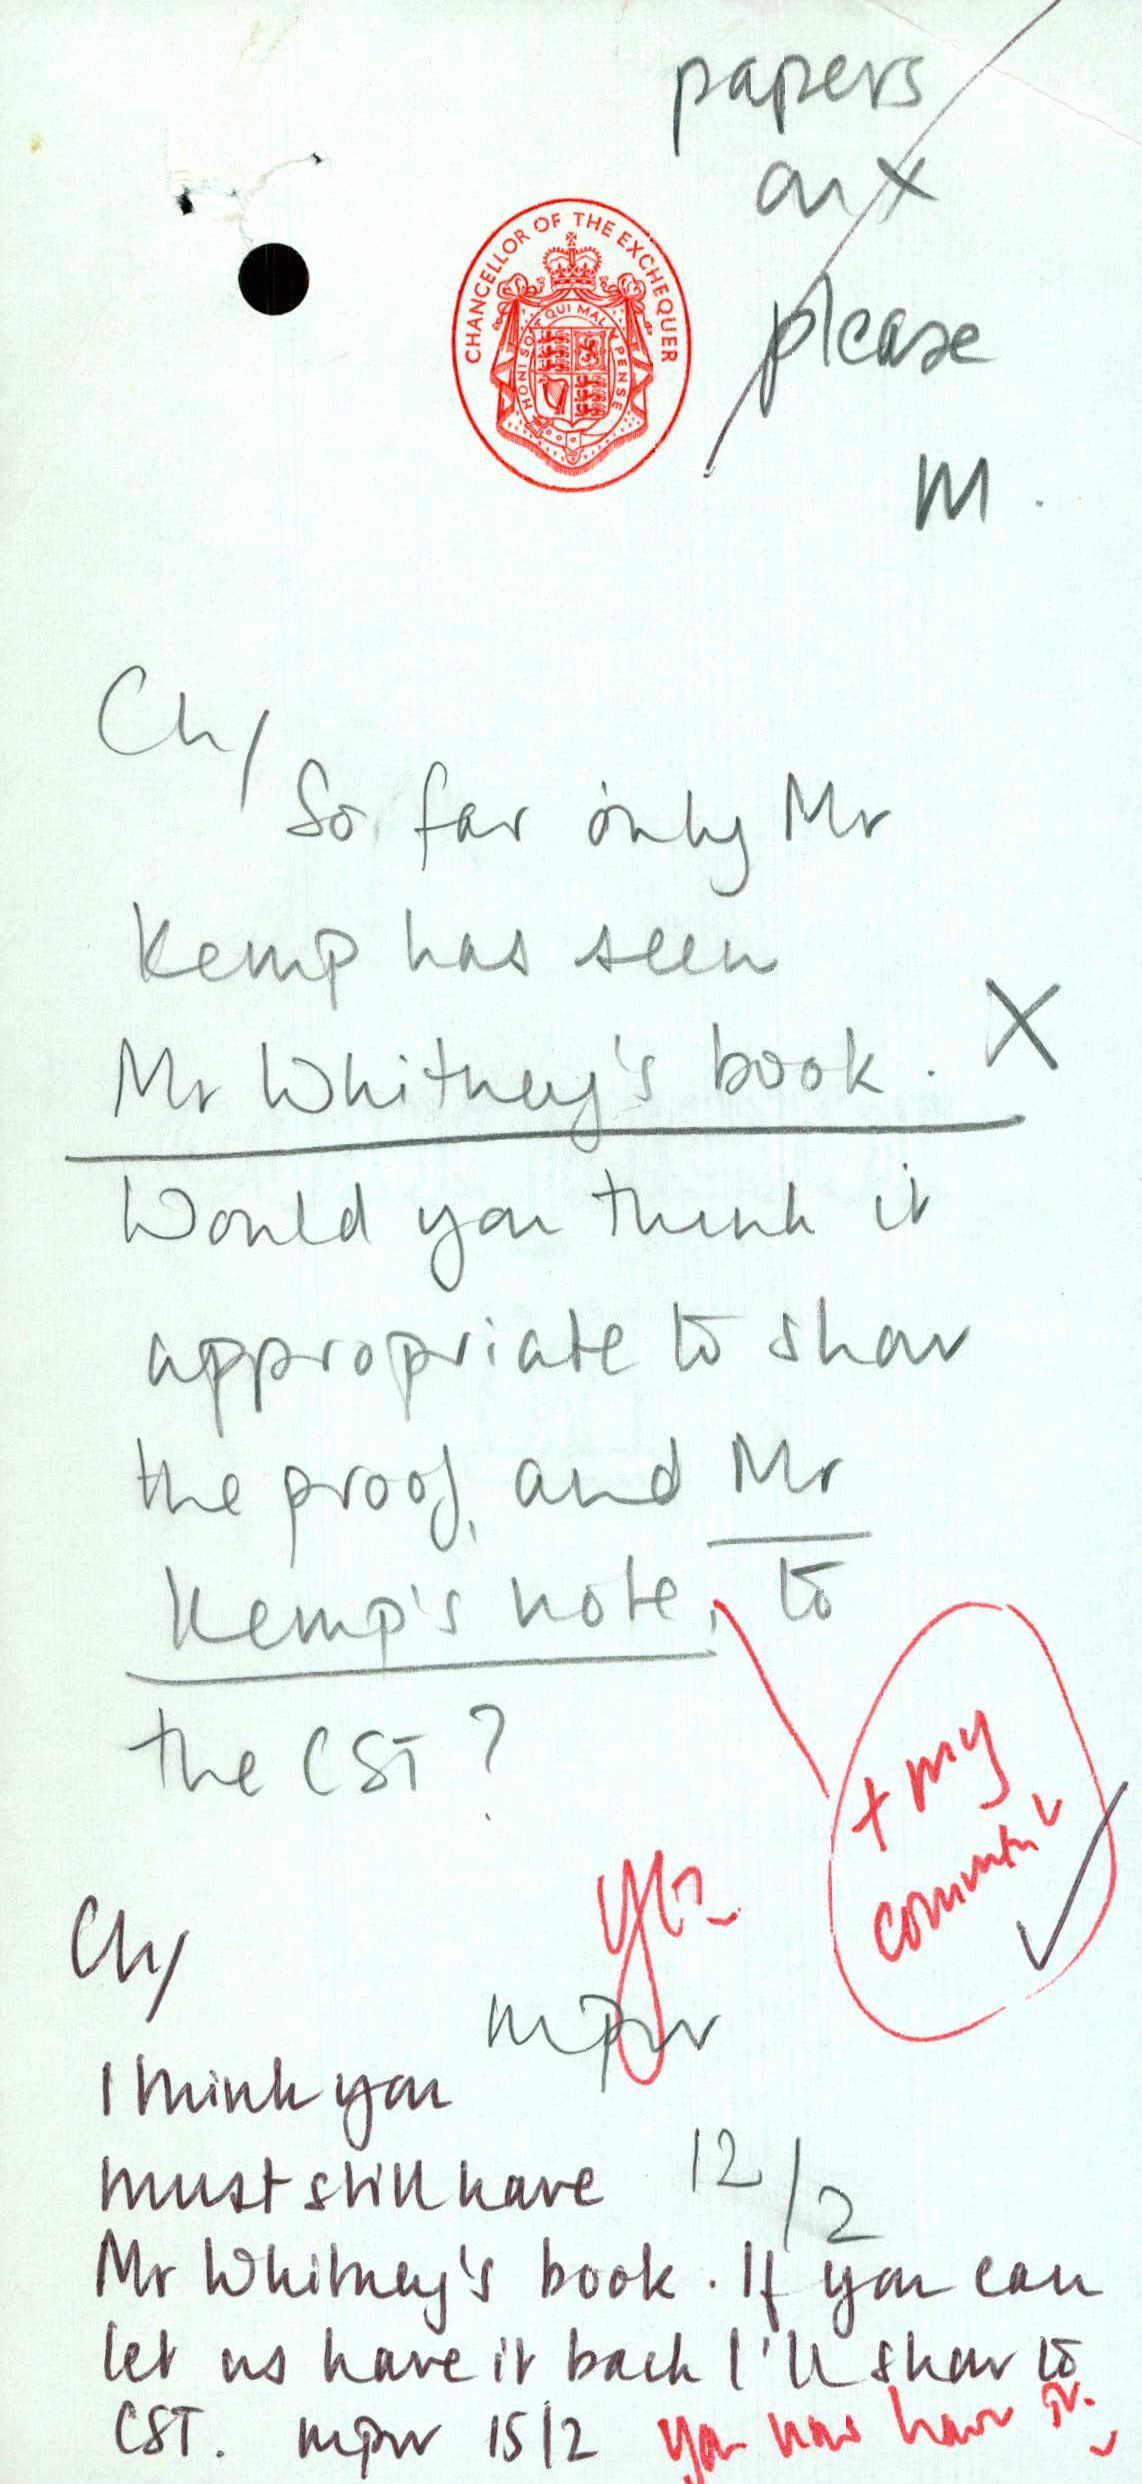 papers
on X
please
M.
CHANCELLOR OF THE EXCHEQUER
HONI SOIT QUI MAL Y PENSE
Ch/
So far only Mr
Kemp has seen
Mr Whitney's book. X
Would you think it
appropriate to show
the proof, and Mr
Kemp's note, to
the CST?
+ my
comments
Yes
Ch/
mpw
I think you
12/2
must still have
Mr Whitney's book. If you can
let us have it back I'll show to
CST. mpw 15/2 you now have it.